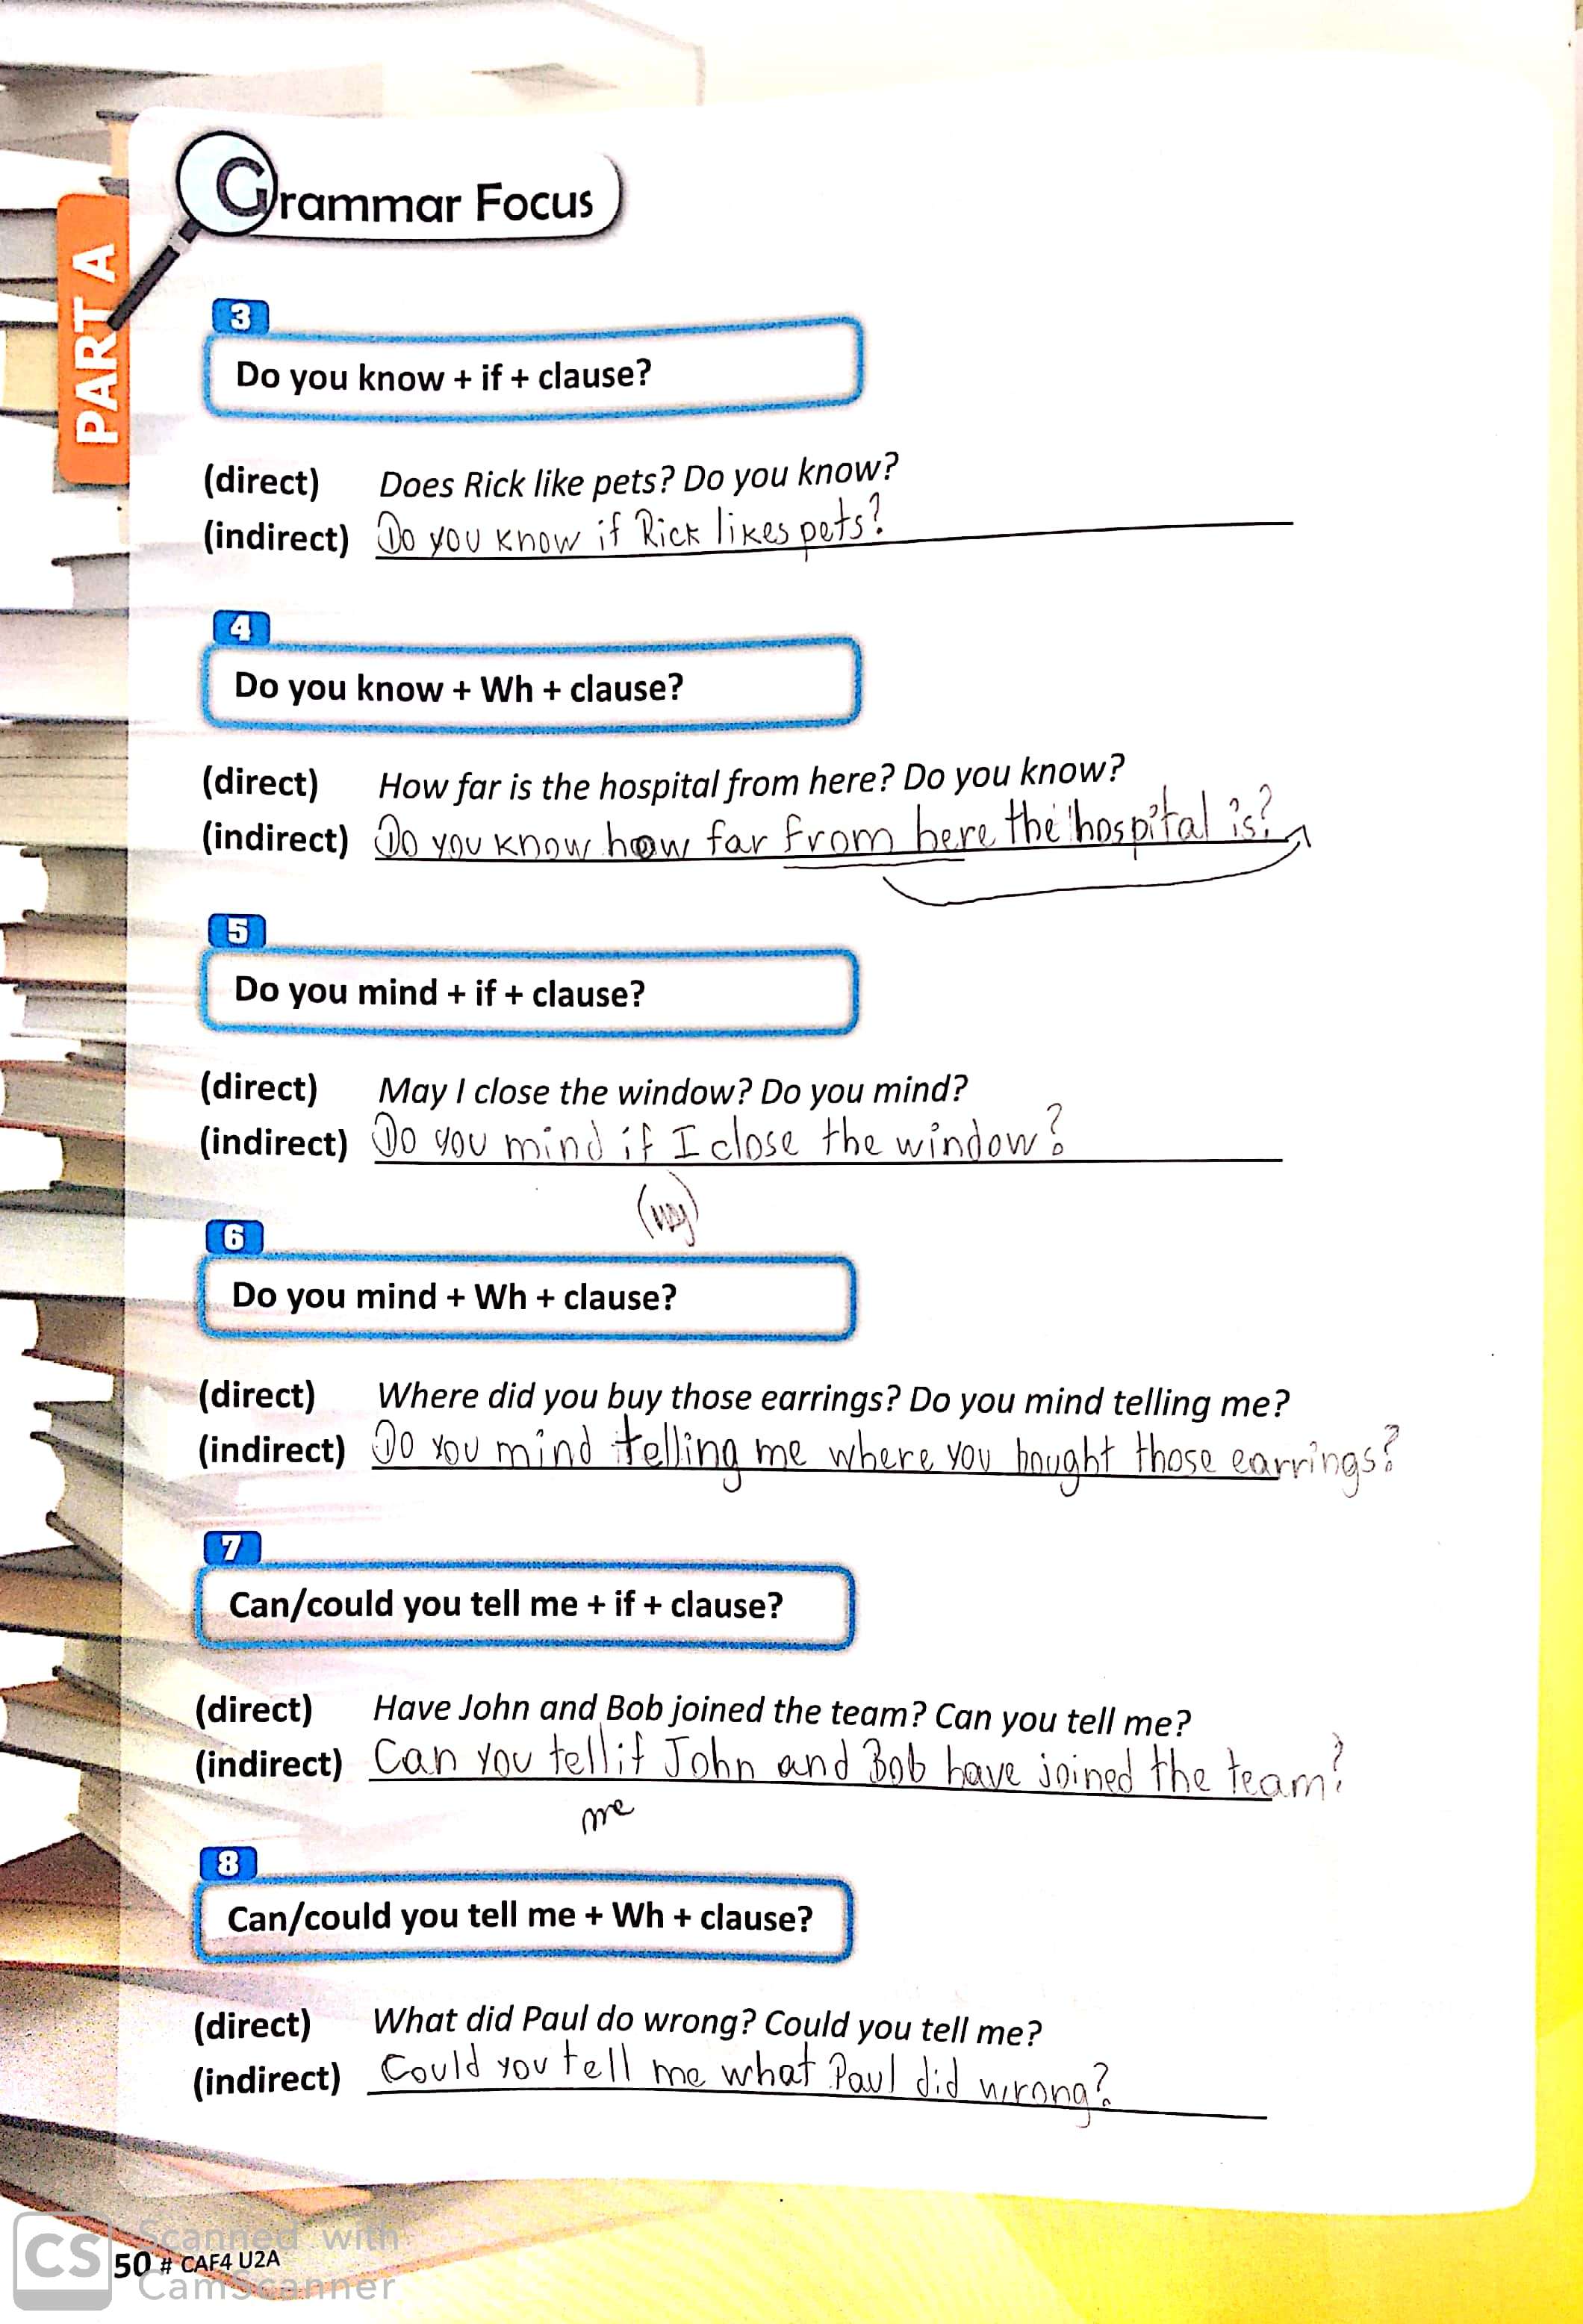 Grammar Focus
PART A
3
Do you know + if + clause?
(direct) Does Rick like pets? Do you know?
(indirect) Do you know if Rick likes pets?
4
Do you know + Wh + clause?
(direct) How far is the hospital from here? Do you know?
(indirect) Do you know how far from here the hospital is?
5
Do you mind + if + clause?
(direct) May I close the window? Do you mind?
(indirect) Do you mind if I close the window?
6
Do you mind + Wh + clause?
(direct) Where did you buy those earrings? Do you mind telling me?
(indirect) Do you mind telling me where you bought those earrings?
7
Can/could you tell me + if + clause?
(direct) Have John and Bob joined the team? Can you tell me?
(indirect) Can you tell if John and Bob have joined the team?
me
8
Can/could you tell me + Wh + clause?
(direct) What did Paul do wrong? Could you tell me?
(indirect) Could you tell me what Paul did wrong?
50 # CAF4 U2A
CS Scanned with
CamScanner